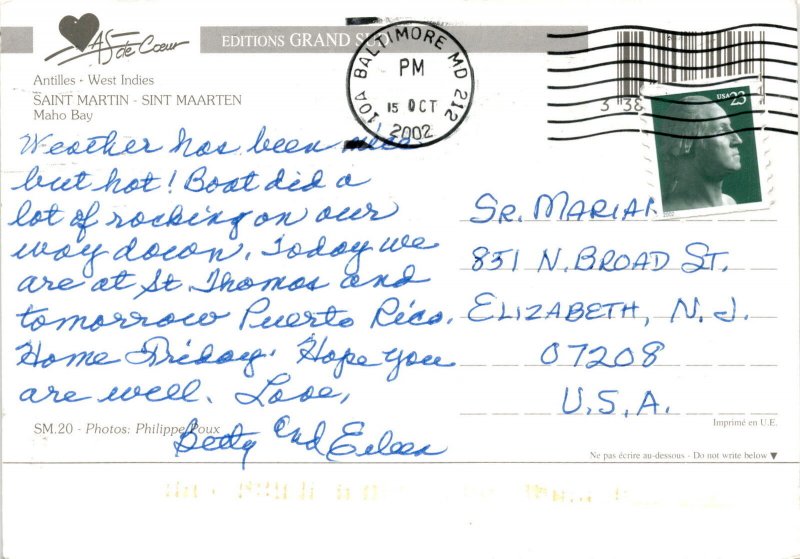 As de Cœur
EDITIONS GRAND SUD
Antilles - West Indies
SAINT MARTIN - SINT MAARTEN
Maho Bay
BALTIMORE MD 212
PM
15 OCT
2002
USA 23
2002
Weather has been nice
but hot! Boat did a
lot of rocking on our
way down. Today we
are at St. Thomas and
tomorrow Puerto Rico.
Home Friday. Hope you
are well. Love,
Betty and Eileen
SR. MARIAN
851 N. BROAD ST.
ELIZABETH, N.J.
07208
U.S.A.
SM.20 - Photos: Philippe Poux
Imprimé en U.E.
Ne pas écrire au-dessous - Do not write below ▼